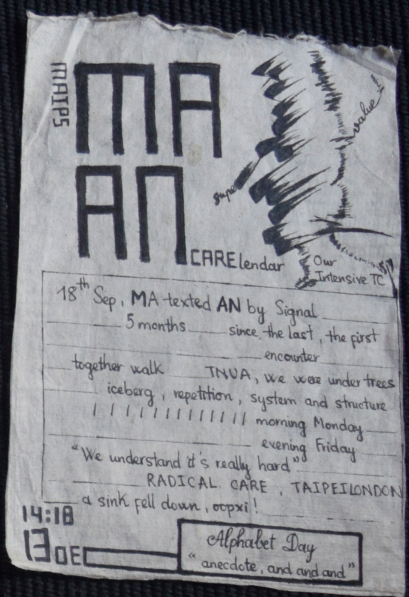 MAIPS
MA
AN
CARElendar
super
value!
Our
Intensive TC
18th Sep, MA texted AN by Signal
5 months since the last, the first
encounter
together walk TNUA, we were under trees
iceberg, repetition, system and structure
morning Monday
evening Friday
"We understand it's really hard"
RADICAL CARE, TAIPEILONDON
a sink fell down, oopxi!
14:18
13
Alphabet Day
"anecdote, and and and"